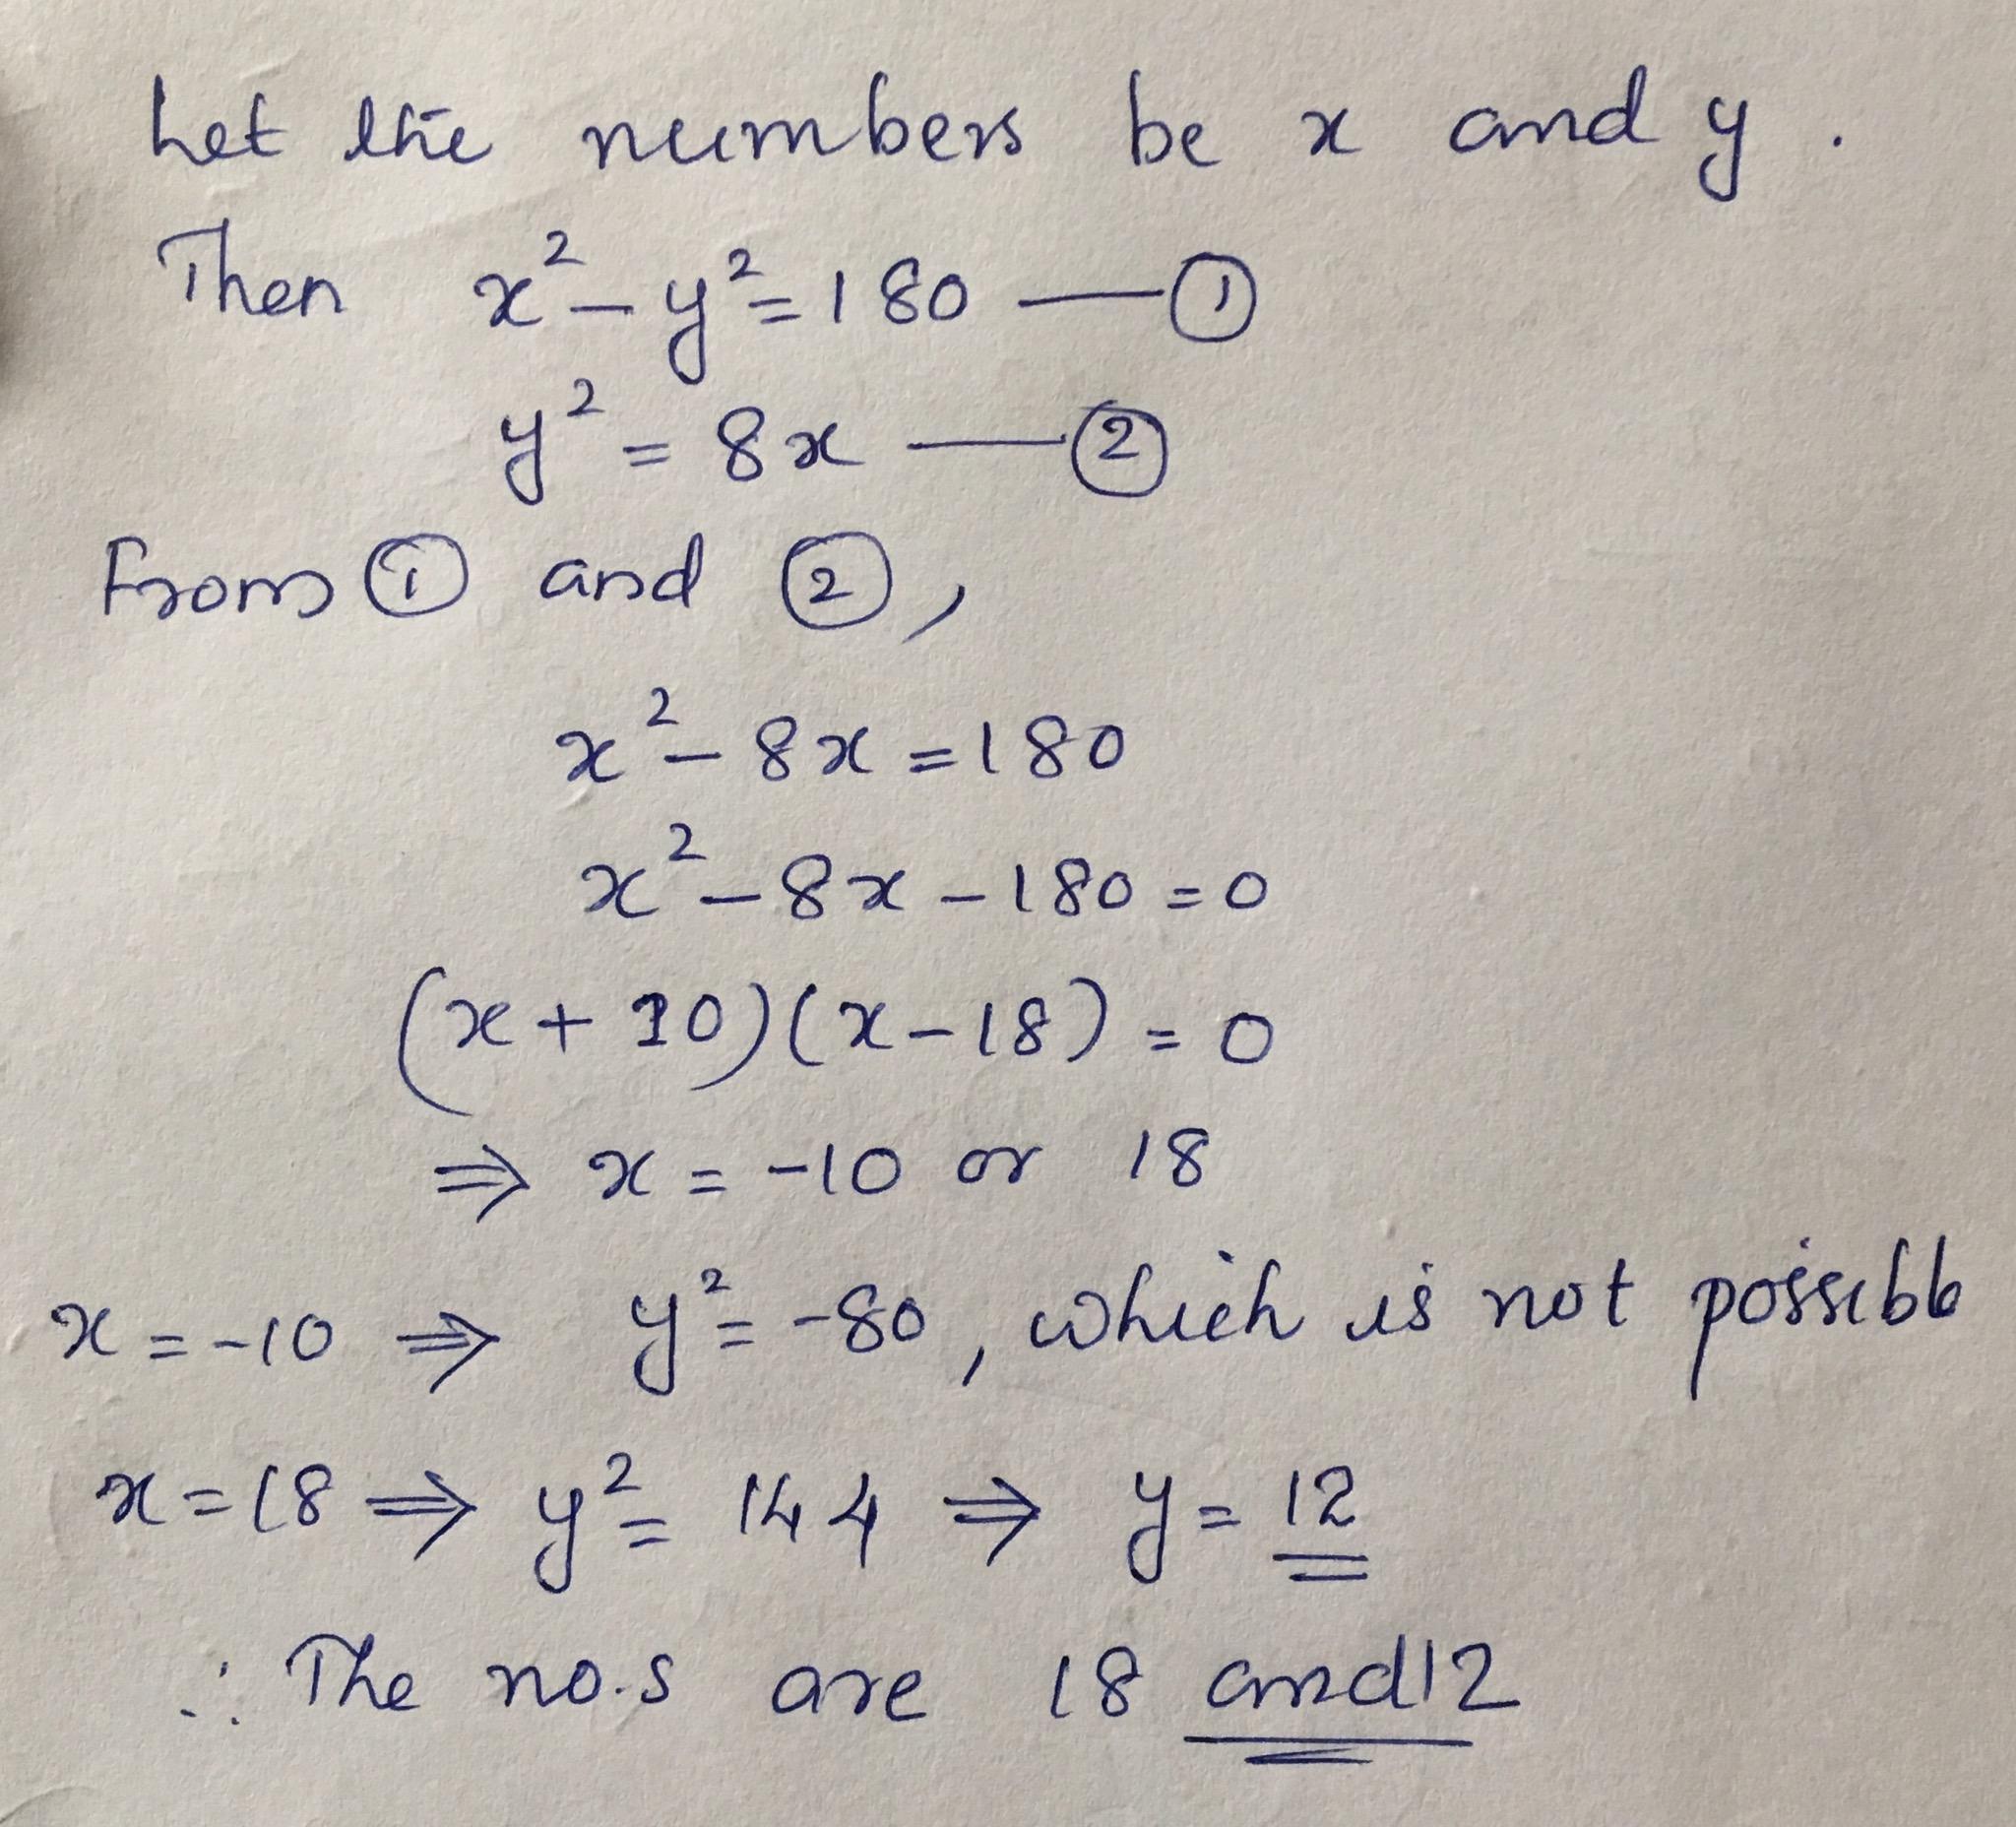 Let the numbers be x and y.
Then x² - y² = 180 — ①
y² = 8x — ②
From ① and ②,
x² - 8x = 180
x² - 8x - 180 = 0
(x + 10)(x - 18) = 0
⇒ x = -10 or 18
x = -10 ⇒ y² = -80, which is not possible
x = 18 ⇒ y² = 144 ⇒ y = 12
∴ The no.s are 18 and 12